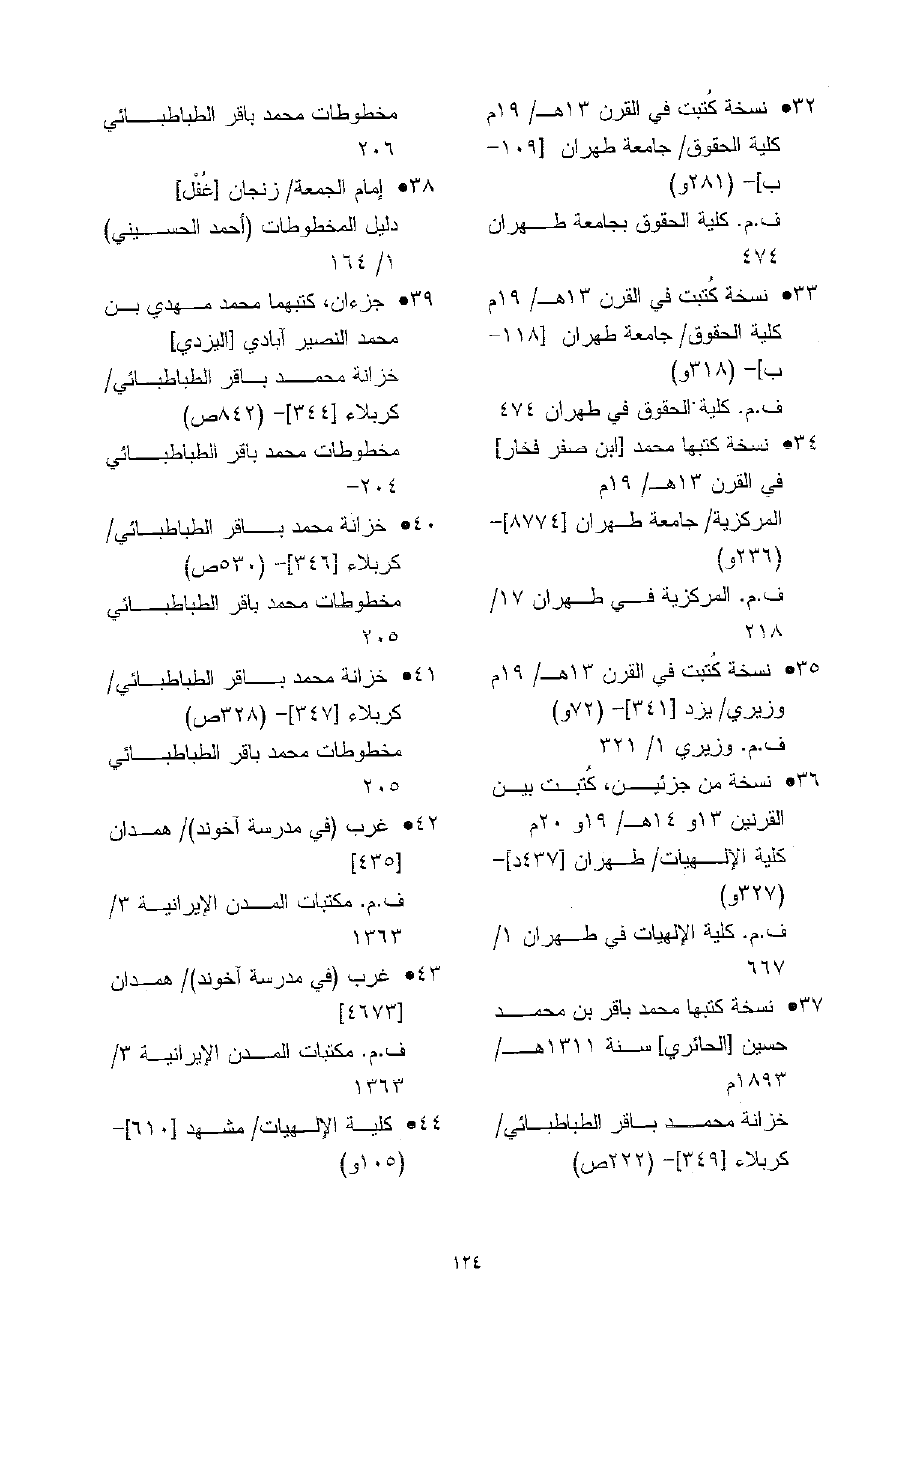 ٣٢• نسخة كُتبت في القرن ١٣هـ/ ١٩م
كلية الحقوق/ جامعة طهران [١٠٩-
ب]- (٢٨١و)
ف.م. كلية الحقوق بجامعة طهران
٤٧٤
٣٣• نسخة كُتبت في القرن ١٣هـ/ ١٩م
كلية الحقوق/ جامعة طهران [١١٨-
ب]- (٣١٨و)
ف.م. كلية الحقوق في طهران ٤٧٤
٣٤• نسخة كتبها محمد [ابن صفر فخار]
في القرن ١٣هـ/ ١٩م
المركزية/ جامعة طهران [٨٧٧٤]-
(٢٣٦و)
ف.م. المركزية في طهران ١٧/
٢١٨
٣٥• نسخة كُتبت في القرن ١٣هـ/ ١٩م
وزيري/ يزد [٣٤١]- (٧٢و)
ف.م. وزيري ١/ ٣٢١
٣٦• نسخة من جزئين، كُتبت بين
القرنين ١٣و ١٤هـ/ ١٩و ٢٠م
كلية الإلهيات/ طهران [٤٣٧د]-
(٣٢٧و)
ف.م. كلية الإلهيات في طهران ١/
٦٦٧
٣٧• نسخة كتبها محمد باقر بن محمد
حسين [الحائري] سنة ١٣١١هـ/
١٨٩٣م
خزانة محمد باقر الطباطبائي/
كربلاء [٣٤٩]- (٢٢٢ص)
مخطوطات محمد باقر الطباطبائي
٢٠٦
٣٨• إمام الجمعة/ زنجان [غُفْل]
دليل المخطوطات (أحمد الحسيني)
١/ ١٦٤
٣٩• جزءان، كتبهما محمد مهدي بن
محمد النصير آبادي [اليزدي]
خزانة محمد باقر الطباطبائي/
كربلاء [٣٤٤]- (٨٤٢ص)
مخطوطات محمد باقر الطباطبائي
٢٠٤-
٤٠• خزانة محمد باقر الطباطبائي/
كربلاء [٣٤٦]- (٥٣٠ص)
مخطوطات محمد باقر الطباطبائي
٢٠٥
٤١• خزانة محمد باقر الطباطبائي/
كربلاء [٣٤٧]- (٣٢٨ص)
مخطوطات محمد باقر الطباطبائي
٢٠٥
٤٢• غرب (في مدرسة آخوند)/ همدان
[٤٣٥]
ف.م. مكتبات المدن الإيرانية ٣/
١٣٦٣
٤٣• غرب (في مدرسة آخوند)/ همدان
[٤٦٧٣]
ف.م. مكتبات المدن الإيرانية ٣/
١٣٦٣
٤٤• كلية الإلهيات/ مشهد [٦١٠]-
(١٠٥و)
١٢٤